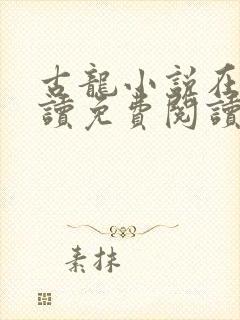 古龍小說在
讀免費閱讀
素抹